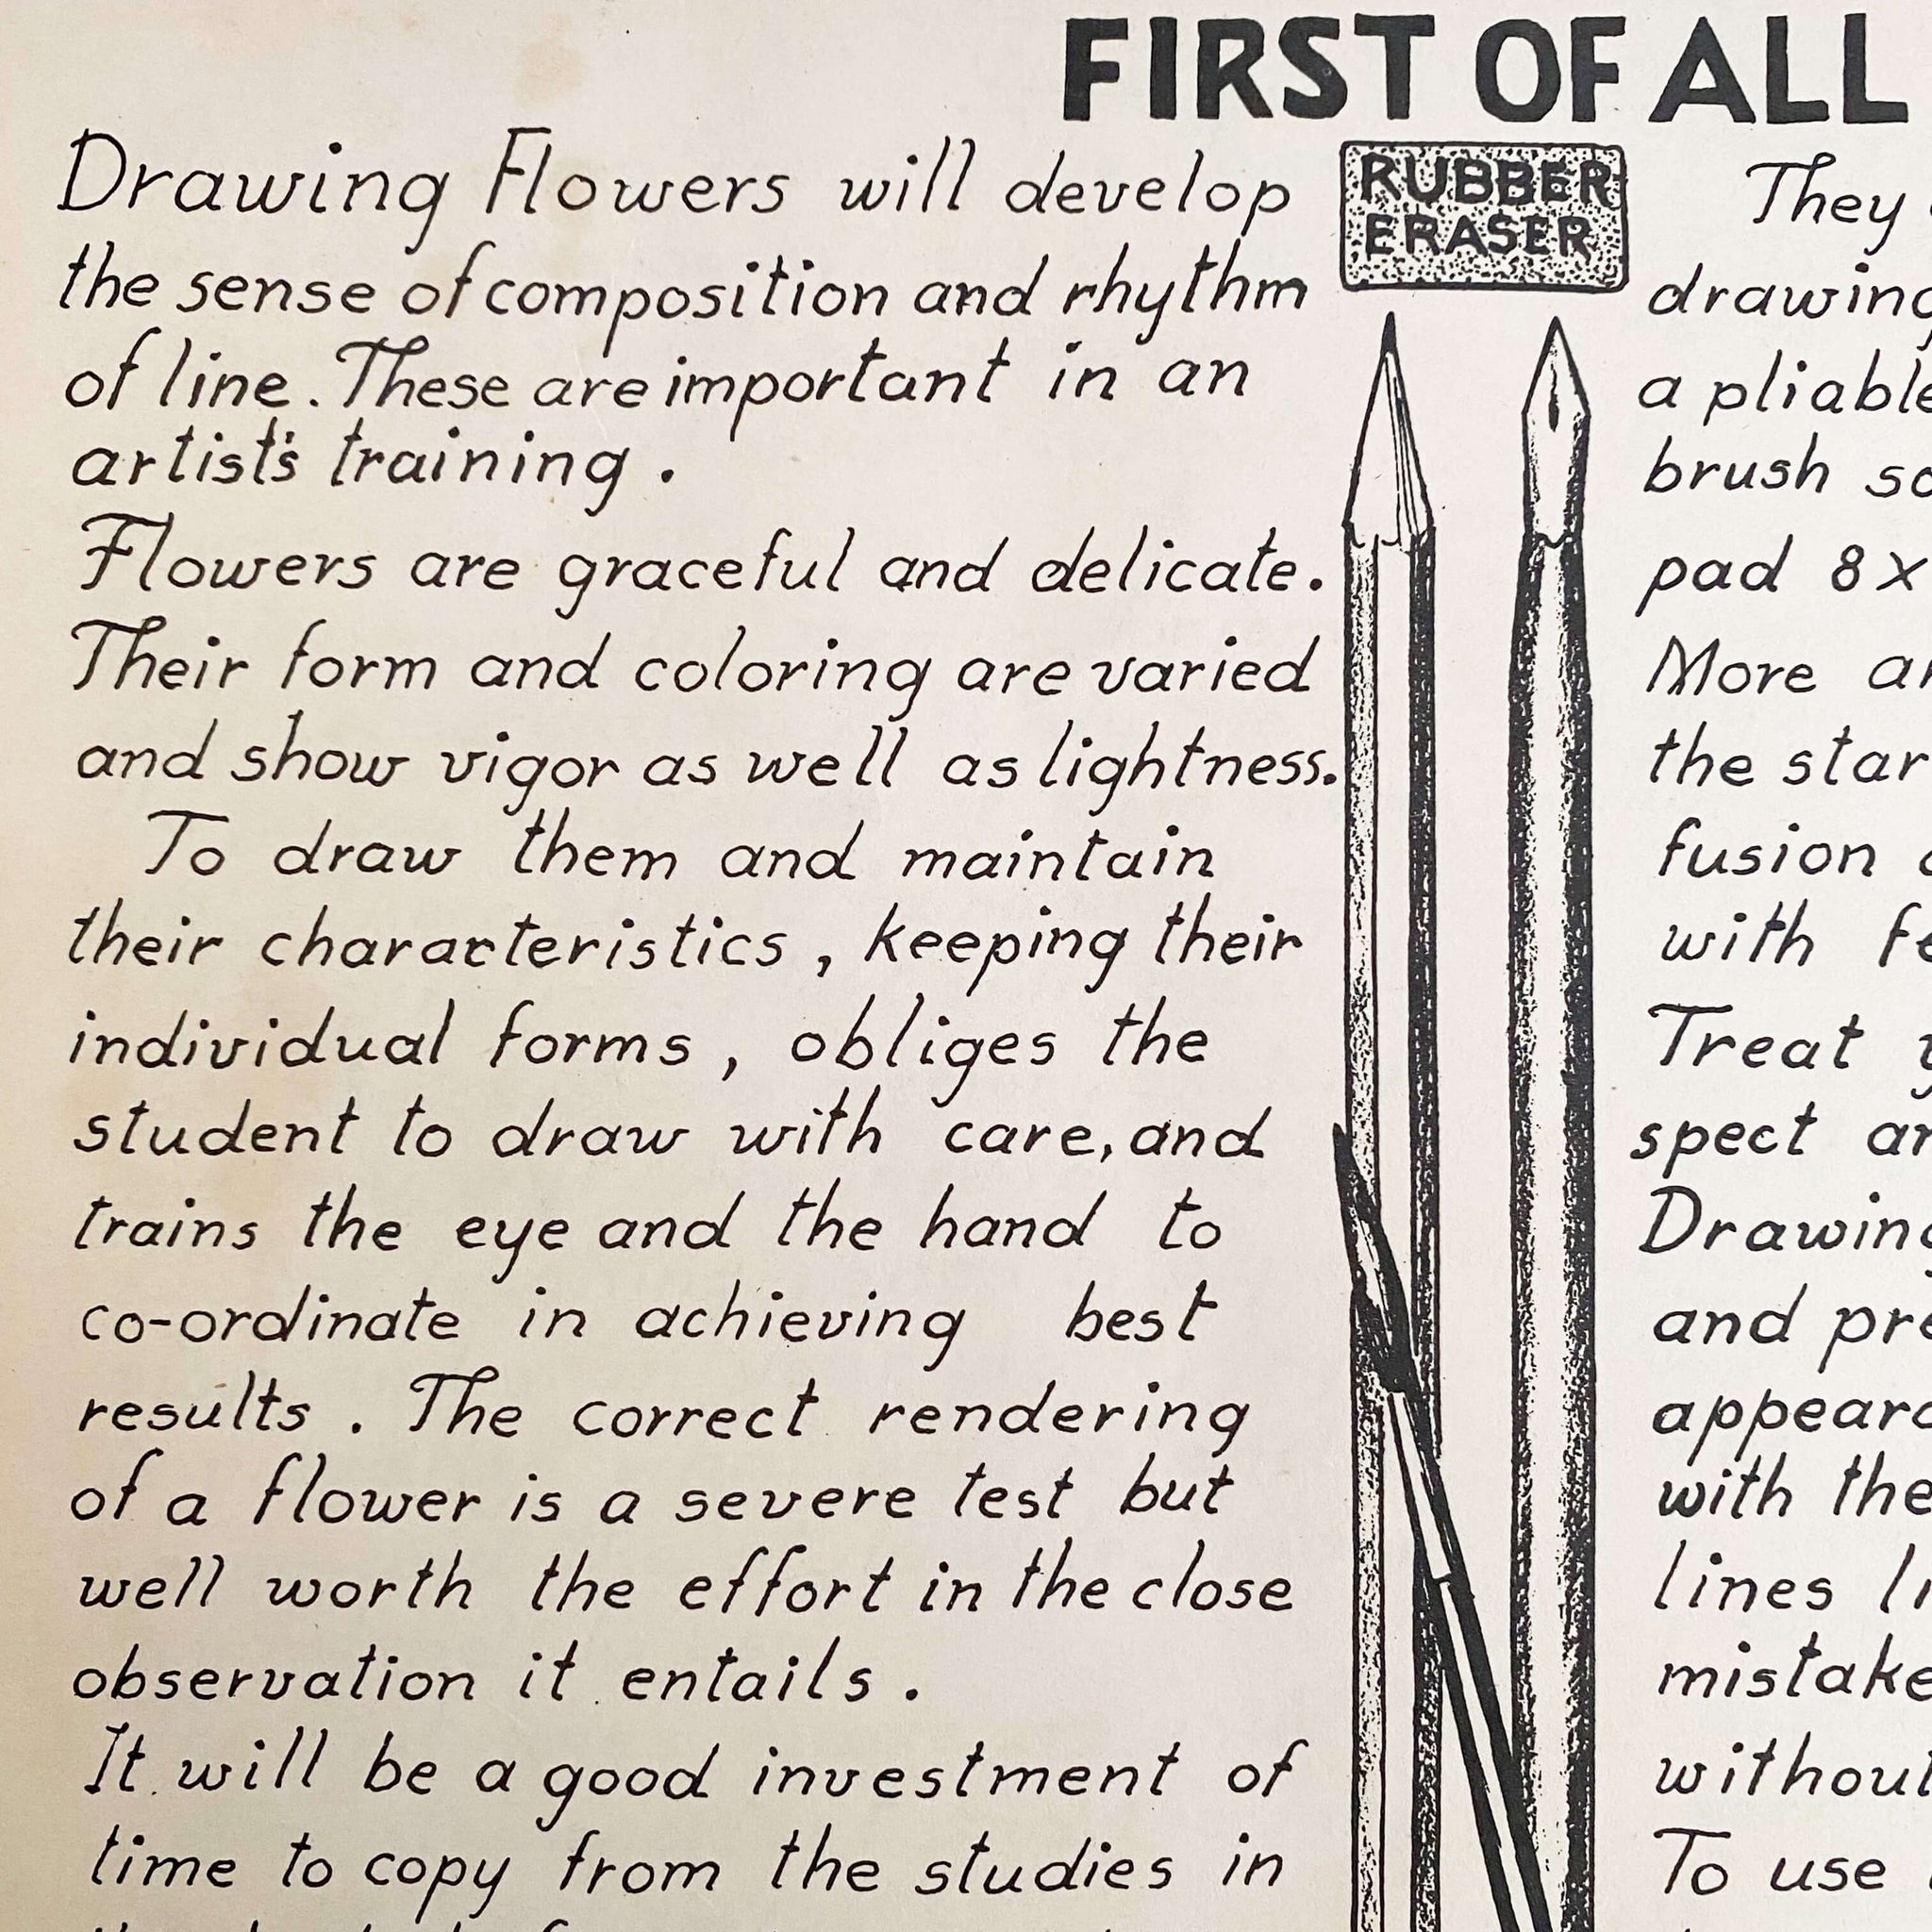 FIRST OF ALL
Drawing Flowers will develop
the sense of composition and rhythm
of line. These are important in an
artist's training.
Flowers are graceful and delicate.
Their form and coloring are varied
and show vigor as well as lightness.
To draw them and maintain
their characteristics, keeping their
individual forms, obliges the
student to draw with care, and
trains the eye and the hand to
co-ordinate in achieving best
results. The correct rendering
of a flower is a severe test but
well worth the effort in the close
observation it entails.
It will be a good investment of
time to copy from the studies in
RUBBER
ERASER
They
drawing
a pliable
brush
pad 8x
More
the
fusion
with
Treat
spect
Drawing
and
with the
lines
without
To use